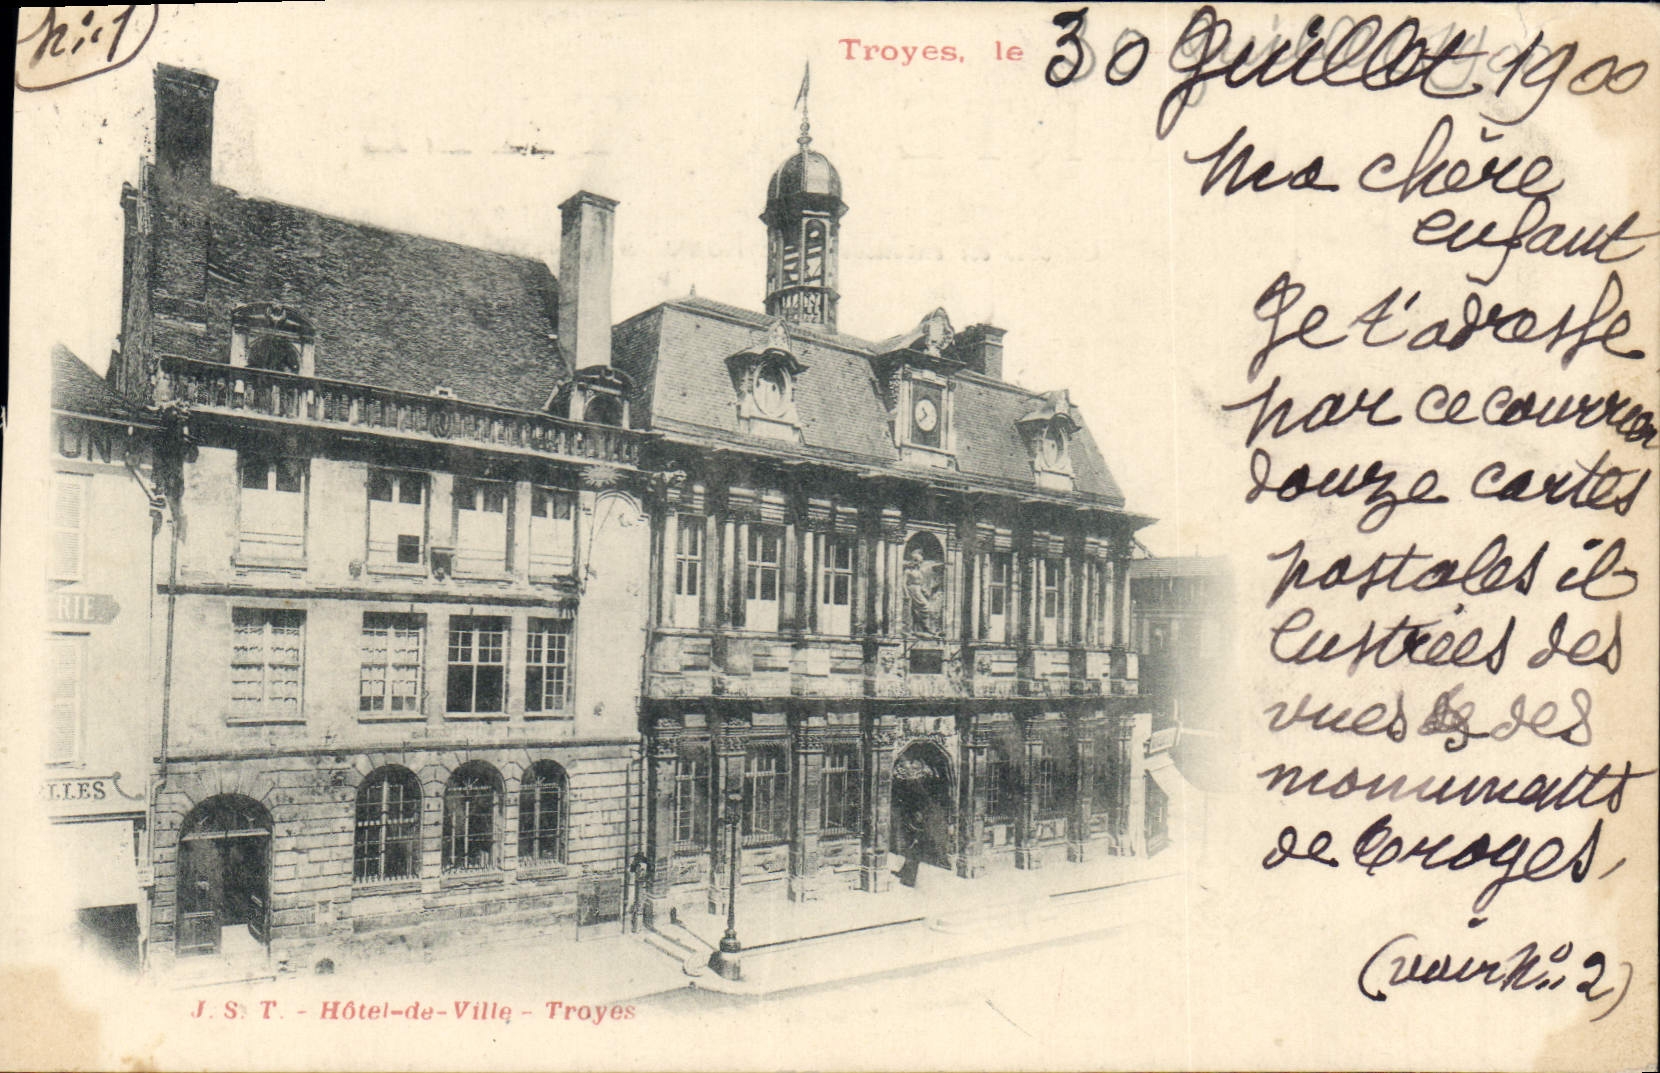 N° 1
Troyes, le 30 Juillet 1900
Ma chère
enfant
Je t'adresse
par ce courrier
douze cartes
postales il-
lustrées des
vues des
monuments
de Troyes,
(voir N° 2)
UN
RIE
LLES
J. S. T. - Hôtel-de-Ville - Troyes